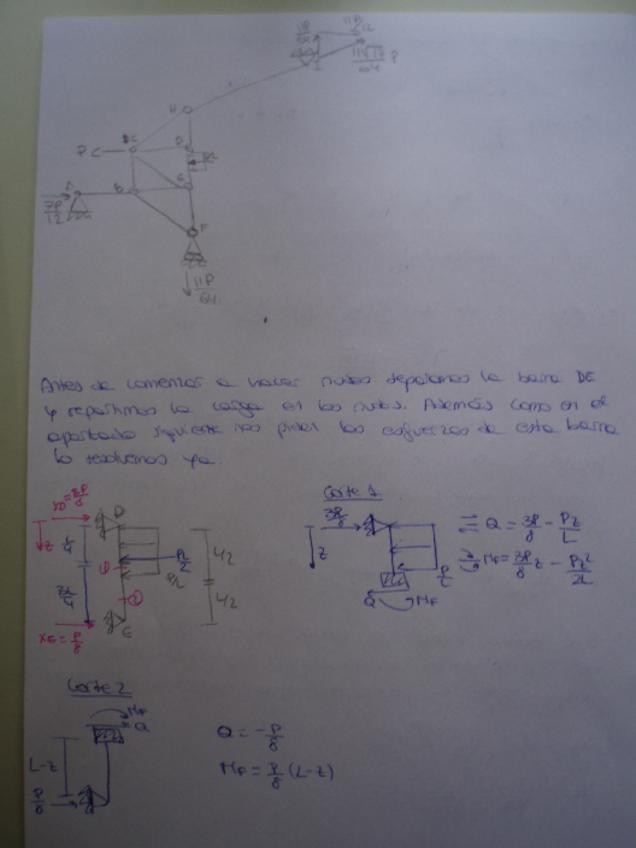 11P
H
C
D
P
A
B
E
7P/12
F
11P/64
Antes de comenzar a hacer nudos separamos la barra DE
y repartimos la carga en los nudos. Además como en el
apartado siguiente nos piden los esfuerzos de esta barra
lo resolvemos ya.
XD = 3P/8
D
z
L/4
3L/4
P/2
P/L
L/2
L/2
1
2
XE = P/8
E
Corte 1
3P/8
z
P/L
Q
MF
Q = 3P/8 - Pz/L
MF = 3P/8 z - Pz²/2L
Corte 2
MF
Q
L-z
P/8
Q = -P/8
MF = P/8 (L-z)